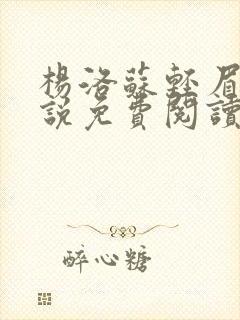 楊洛蘇輕眉
說免費閱讀
醉心糖